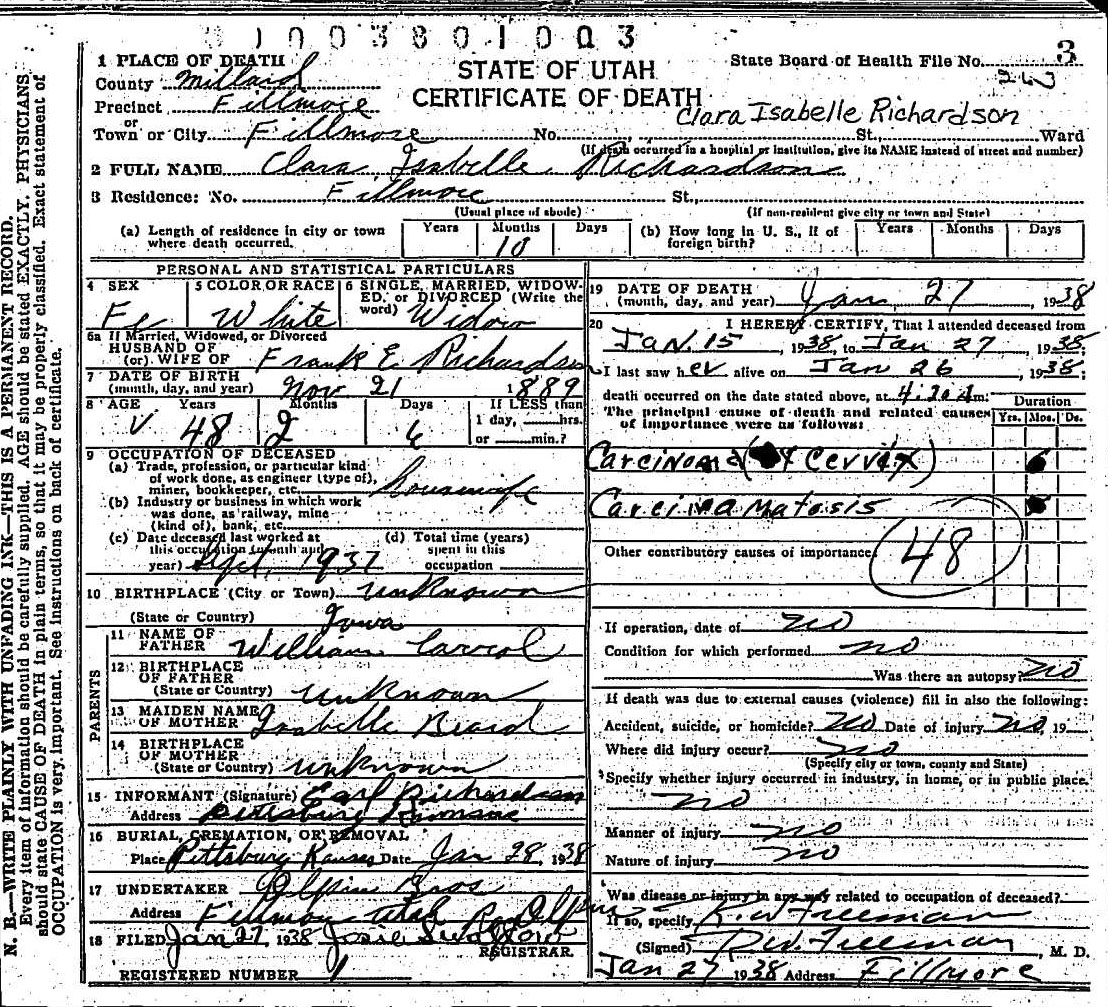 N. B.—WRITE PLAINLY WITH UNFADING INK—THIS IS A PERMANENT RECORD.
Every item of information should be carefully supplied. AGE should be stated EXACTLY. PHYSICIANS
should state CAUSE OF DEATH in plain terms, so that it may be properly classified. Exact statement of
OCCUPATION is very important. See instructions on back of certificate.
3
1 PLACE OF DEATH
STATE OF UTAH
State Board of Health File No.
County Millard
CERTIFICATE OF DEATH
Precinct Fillmore
Clara Isabelle Richardson
or
Town or City Fillmore No. St. Ward
(If death occurred in a hospital or institution, give its NAME instead of street and number)
2 FULL NAME Clara Isabelle Richardson
3 Residence: No. Fillmore St.,
(Usual place of abode) (If non-resident give city or town and State)
(a) Length of residence in city or town where death occurred. Years Months 10 Days
(b) How long in U. S., if of foreign birth? Years Months Days
PERSONAL AND STATISTICAL PARTICULARS
4 SEX Fe
5 COLOR OR RACE White
6 SINGLE, MARRIED, WIDOWED, or DIVORCED (Write the word) Widow
6a If Married, Widowed, or Divorced
HUSBAND OF
(or) WIFE OF Frank E Richardson
7 DATE OF BIRTH
(month, day, and year) Nov 21 1889
8 AGE Years 48 Months 2 Days 6 If LESS than 1 day, hrs. or min.?
9 OCCUPATION OF DECEASED
(a) Trade, profession, or particular kind
of work done, as engineer (type of),
miner, bookkeeper, etc. housewife
(b) Industry or business in which work
was done, as railway, mine
(kind of), bank, etc.
(c) Date deceased last worked at
this occupation (month and
year) Sept. 1937
(d) Total time (years)
spent in this
occupation
10 BIRTHPLACE (City or Town) unknown
(State or Country) Iowa
PARENTS
11 NAME OF
FATHER William Carrol
12 BIRTHPLACE
OF FATHER
(State or Country) unknown
13 MAIDEN NAME
OF MOTHER Isabelle Beard
14 BIRTHPLACE
OF MOTHER
(State or Country) unknown
15 INFORMANT (Signature) Earl Richardson
Address Pittsburg Kansas
16 BURIAL, CREMATION, OR REMOVAL
Place Pittsburg Kansas Date Jan 28, 1938
17 UNDERTAKER Olpin Bros
Address Fillmore Utah Ray Olpin
18 FILED Jan 27, 1938 Josie
REGISTRAR.
REGISTERED NUMBER 1
19 DATE OF DEATH
(month, day, and year) Jan. 27, 1938
20 I HEREBY CERTIFY, That I attended deceased from
Jan. 15, 1938, to Jan 27, 1938;
I last saw her alive on Jan 26, 1938;
death occurred on the date stated above, at m: Duration
The principal cause of death and related causes
of importance were as follows: Yrs. Mos. Ds.
Carcinoma (of Cervix) 6
Carcinamatosis
Other contributory causes of importance:
48
If operation, date of no
Condition for which performed no
Was there an autopsy? no
If death was due to external causes (violence) fill in also the following:
Accident, suicide, or homicide? no Date of injury no, 19
Where did injury occur? no
(Specify city or town, county and State)
Specify whether injury occurred in industry, in home, or in public place.
no
Manner of injury no
Nature of injury no
Was disease or injury in any way related to occupation of deceased?
If so, specify R. W. Freeman
(Signed) R. W. Freeman, M. D.
Jan 27, 1938 Address Fillmore